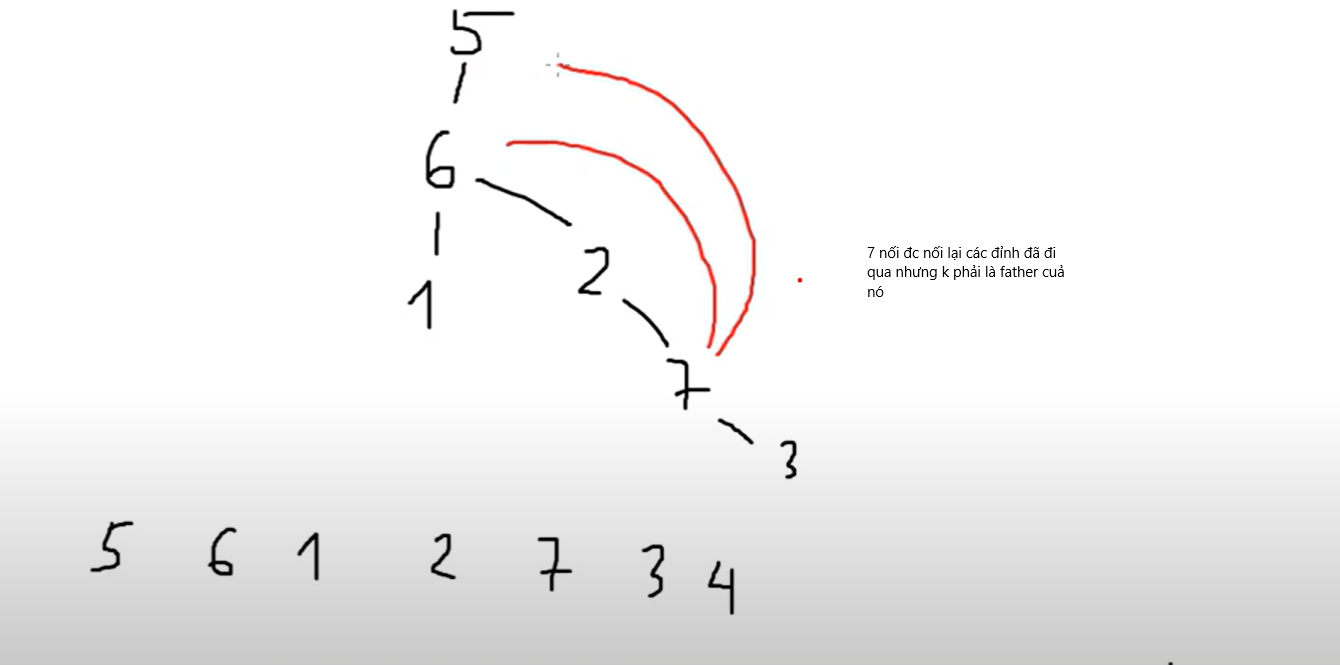 5
6
1
2
7 nối đc nối lại các đỉnh đã đi
qua nhưng k phải là father cuả
nó
7
3
5 6 1 2 7 3 4